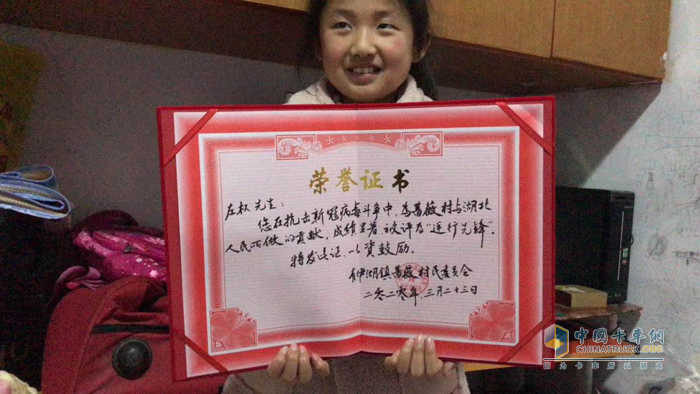 荣誉证书
左权先生:
您在抗击新冠病毒斗争中,为蔷薇村与湖北
人民所做的贡献,成绩显著,被评为"逆行先锋"。
特发此证,以资鼓励。
钟湖镇蔷薇村民委员会
二〇二〇年三月二十三日
中国卡车网
CHINATRUCK.ORG
因为卡车所以朋友